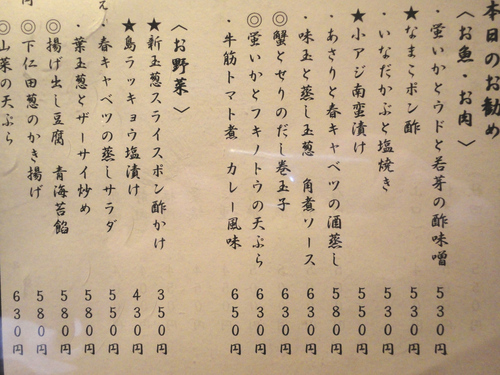 本日のお勧め
〈お魚・お肉〉
・蛍いかとウドと若芽の酢味噌 530円
★なまこポン酢 530円
・いなだかぶと塩焼き 530円
★小アジ南蛮漬け 550円
・あさりと春キャベツの酒蒸し 580円
・味玉と蒸し玉葱 角煮ソース 630円
◎蟹とセリのだし巻玉子 630円
◎蛍いかとフキノトウの天ぷら 630円
・牛筋トマト煮 カレー風味 650円
〈お野菜〉
★新玉葱スライスポン酢かけ 350円
★島ラッキョウ塩漬け 430円
・春キャベツの蒸しサラダ 550円
・葉玉葱とザーサイ炒め 550円
◎揚げ出し豆腐 青海苔餡 580円
◎下仁田葱のかき揚げ 580円
◎山菜の天ぷら 630円